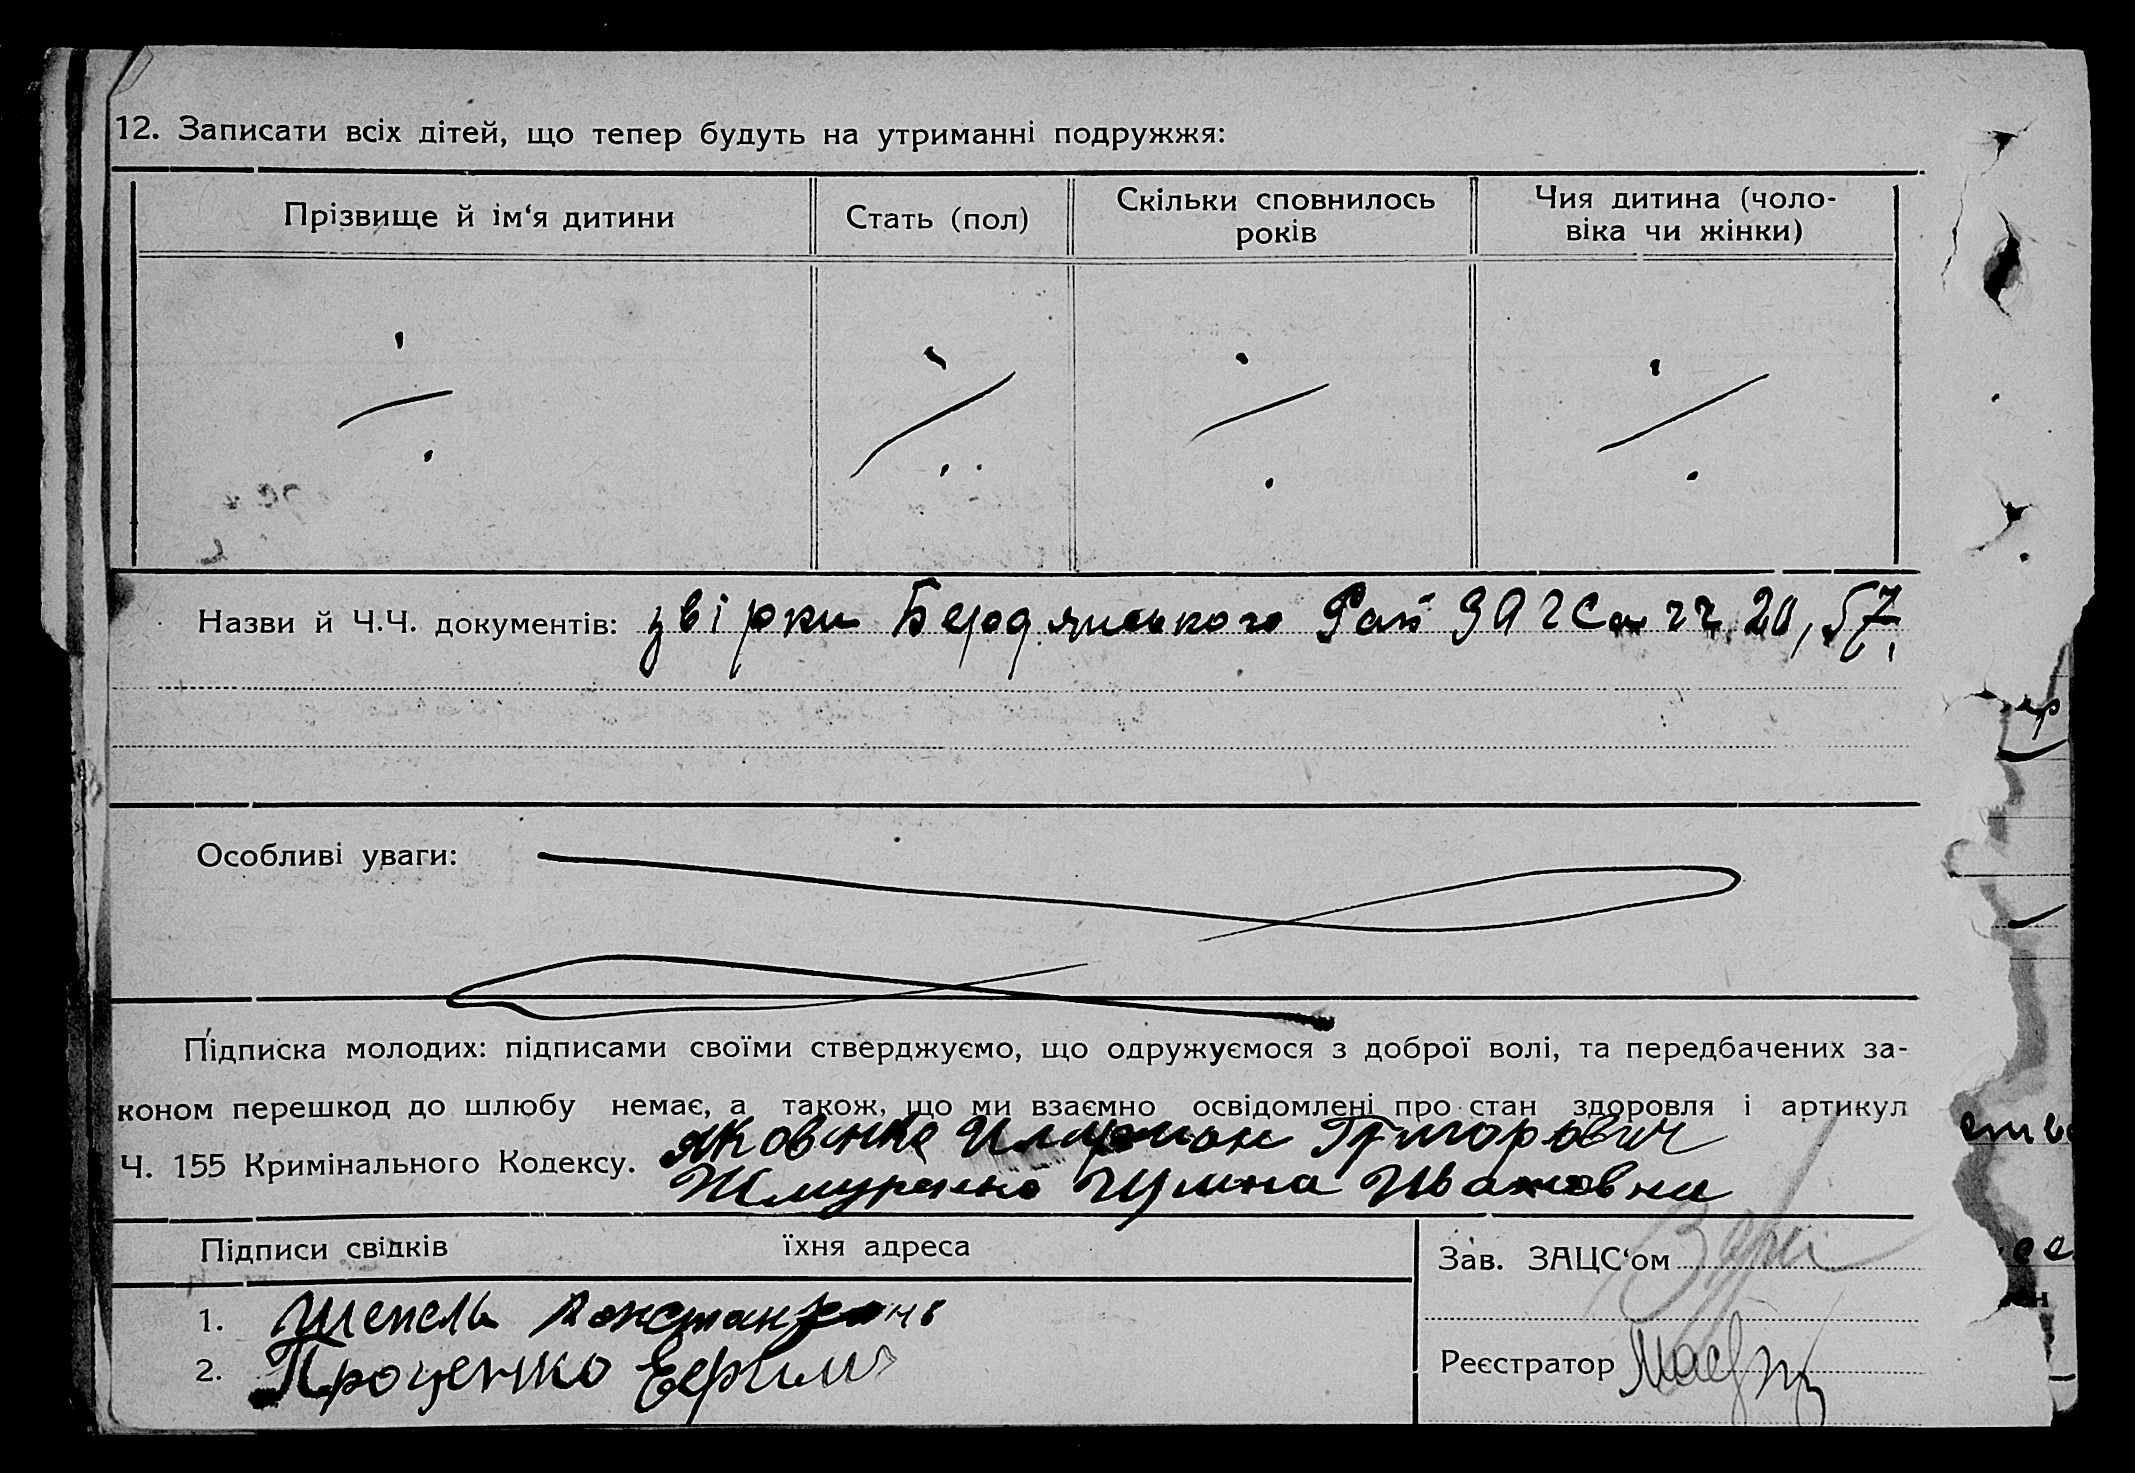 12. Записати всіх дітей, що тепер будуть на утриманні подружжя:
Прізвище й ім‘я дитини
Стать (пол)
Скільки сповнилось
років
Чия дитина (чоло-
віка чи жінки)
Назви й Ч.Ч. документів: звірки Бердянського Рай ЗАГСа чч. 20, 57
Особливі уваги:
Підписка молодих: підписами своїми стверджуємо, що одружуємося з доброї волі, та передбачених за-
коном перешкод до шлюбу немає, а також, що ми взаємно освідомлені про стан здоровля і артикул
Ч. 155 Кримінального Кодексу. Григорович
Ивановна
Підписи свідків їхня адреса
Зав. ЗАЦС‘ом
1. Шепель
2. Проценко
Реєстратор